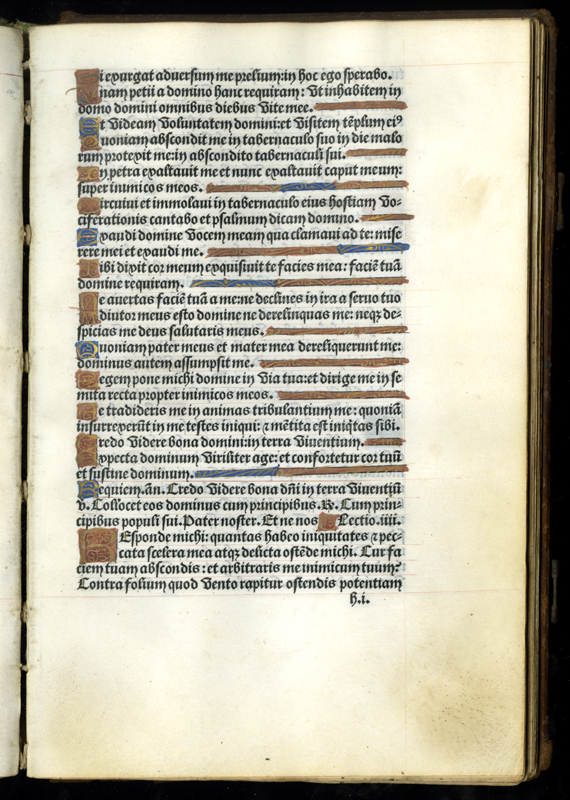 Si exurgat adversum me prelium: in hoc ego sperabo.
Unam petii a domino hanc requiram: Vt inhabitem in
domo domini omnibus diebus Vite mee.
Vt Videam Voluntatem domini: et Visitem tēplum eiꝰ
Quoniam abscondit me in tabernaculo suo in die malo
rum protexit me: in abscondito tabernaculi sui.
In petra exaltauit me et nunc exaltauit caput meum:
super inimicos meos.
Circuiui et immolaui in tabernaculo eius hostiam Vo-
ciferationis cantabo et psalmum dicam domino.
Exaudi domine Vocem meam qua clamaui ad te: mise
rere mei et exaudi me.
Tibi dixit cor meum exquisiuit te facies mea: faciē tuā
domine requiram.
Ne auertas faciē tuā a me: ne declines in ira a seruo tuo
Adiutor meus esto domine ne derelinquas me: neqꝫ de-
spicias me deus salutaris meus.
Quoniam pater meus et mater mea dereliquerunt me:
dominus autem assumpsit me.
Legem pone michi domine in Via tua: et dirige me in se
mita recta propter inimicos meos.
Ne tradideris me in animas tribulantium me: quoniā
insurrexerūt in me testes iniqui: ⁊ mētita est iniqtas sibi.
Credo Videre bona domini: in terra Viuentium.
Expecta dominum Viriliter age: et confortetur cor tuū
et sustine dominum.
Requiem. añ. Credo Videre bona dñi in terra Viuentiū
V. Collocet eos dominus cum principibus. ℟. Cum prin-
cipibus populi sui. Pater noster. Et ne nos Lectio. iiii.
REsponde michi: quantas habeo iniquitates ⁊ pec-
cata scelera mea atqꝫ delicta ostēde michi. Cur fa
ciem tuam abscondis: et arbitraris me inimicum tuum?
Contra folium quod Vento rapitur ostendis potentiam
h.i.